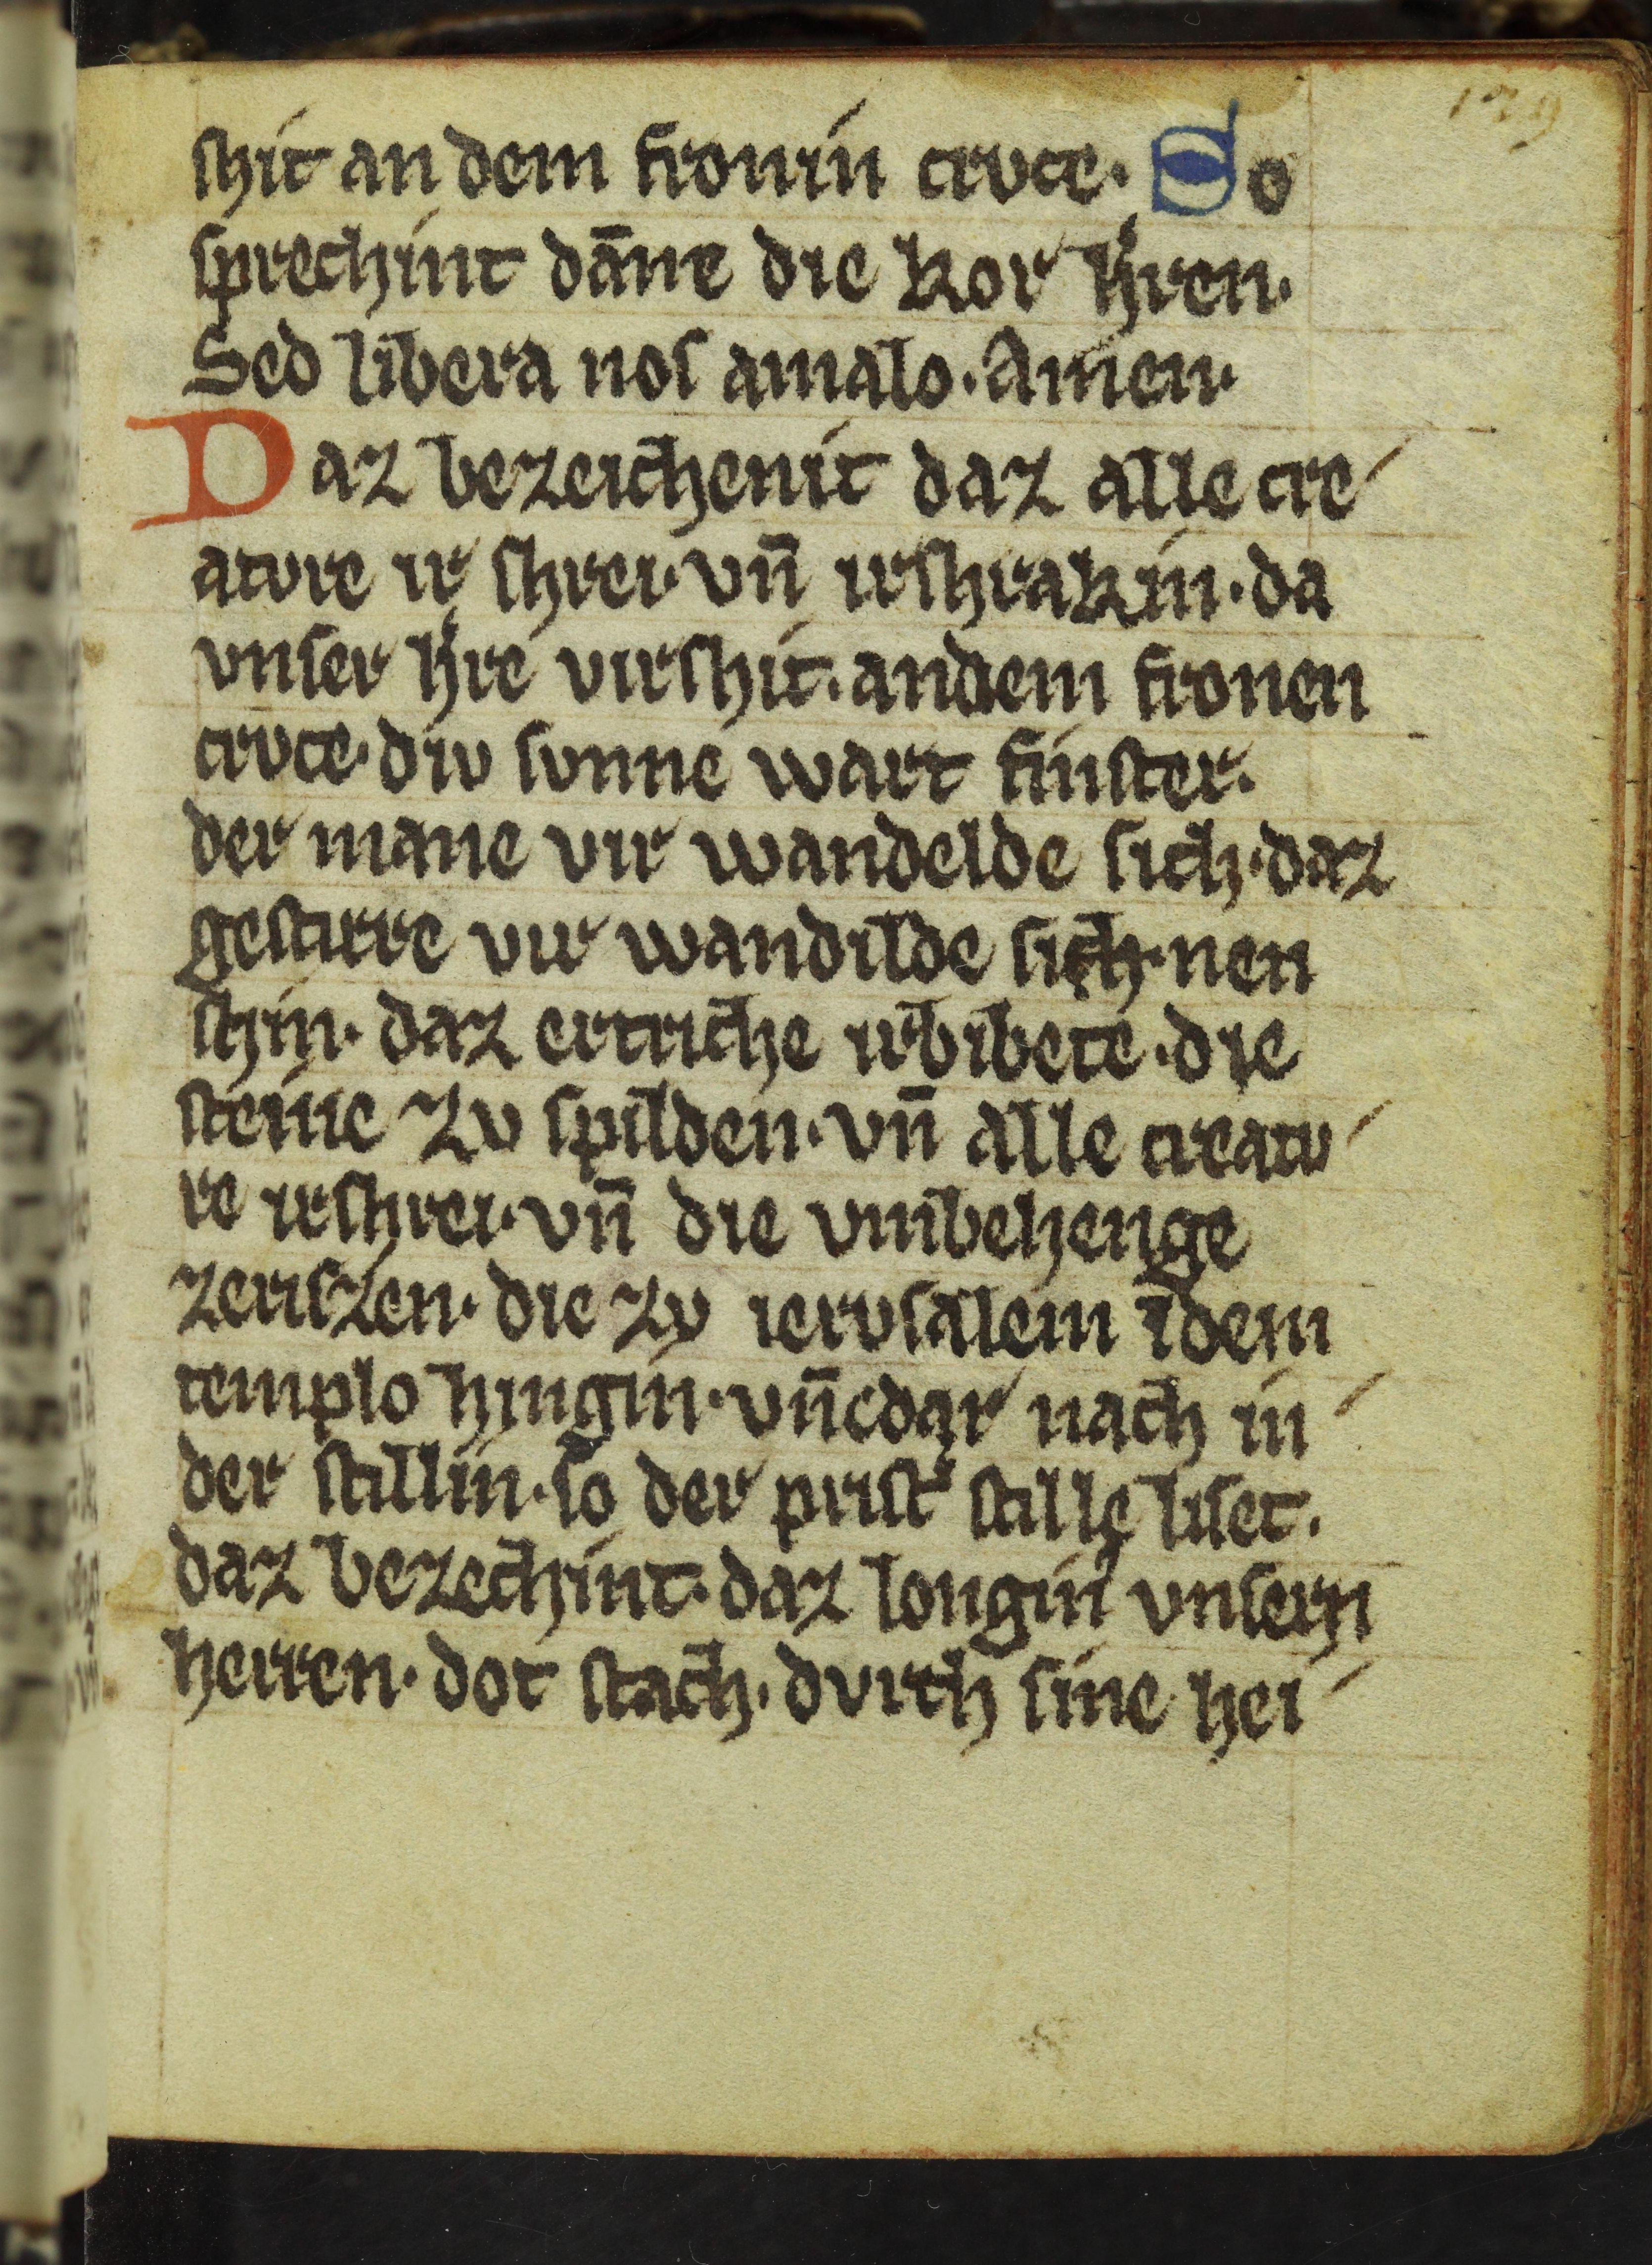 129
shit an dem fronin cruce. So
sprechint dāne die kor h̓ren.
Sed libera nos amalo. Amen.
Daz bezeichenit daz alle cre/
ature ir shrei. vn̄ irshrakin. da
vnser h̓re virshit. andem fronen
cruce. div sunne wart finster.
der mane vir wandelde sich. daz
gestirre vir wandilde sich. nen
schin. daz ertriche irbibete. die
steine zv spilden. vn̄ alle creatv/
re irshrei. vn̄ die vmbehenge
zeriszen. die zv iervsalem ī dem
templo hingin. vn̄ dar nach in/
der stillin. so der prist̓ stille liset.
daz bezechint. daz longin̓ vnsern
herren. dot stach. dvrch sine hei/